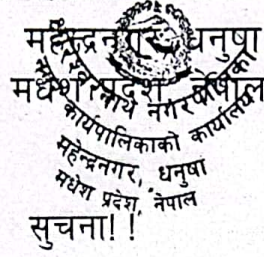 महेन्द्रनगर, धनुषा
मधेश प्रदेश, नेपाल
नगरपालिका
नगर कार्यपालिकाको कार्यालय
महेन्द्रनगर, धनुषा
मधेश प्रदेश, नेपाल
सुचना! !